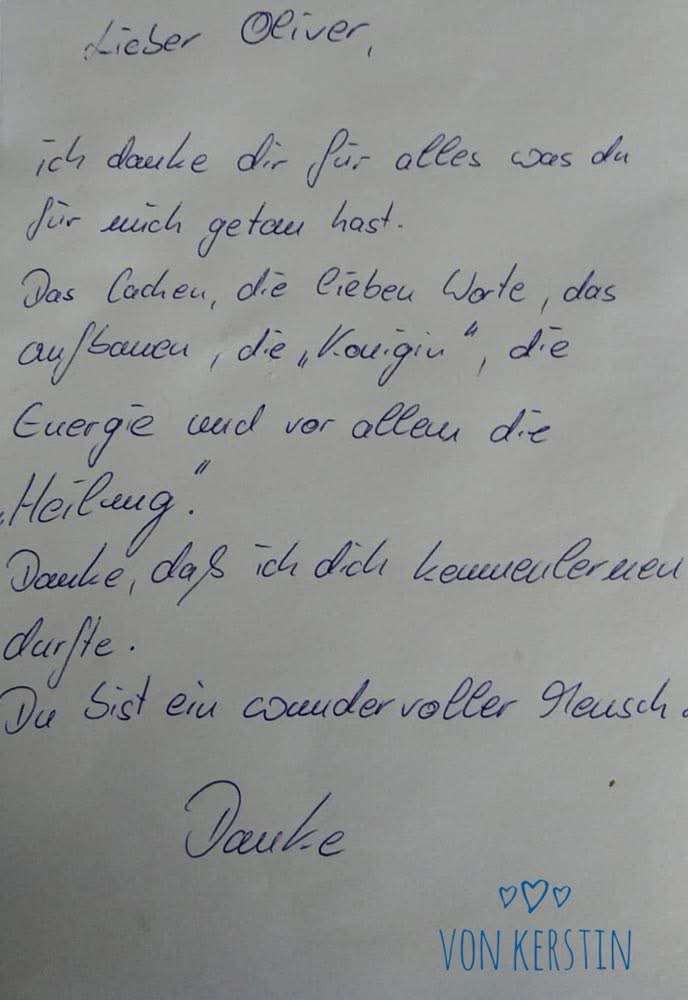 Lieber Oliver,
ich danke dir für alles was du
für mich getan hast.
Das Lachen, die lieben Worte, das
aufbauen, die „Königin", die
Energie und vor allem die
„Heilung".
Danke, daß ich dich kennenlernen
durfte.
Du bist ein wundervoller Mensch.
Danke
VON KERSTIN